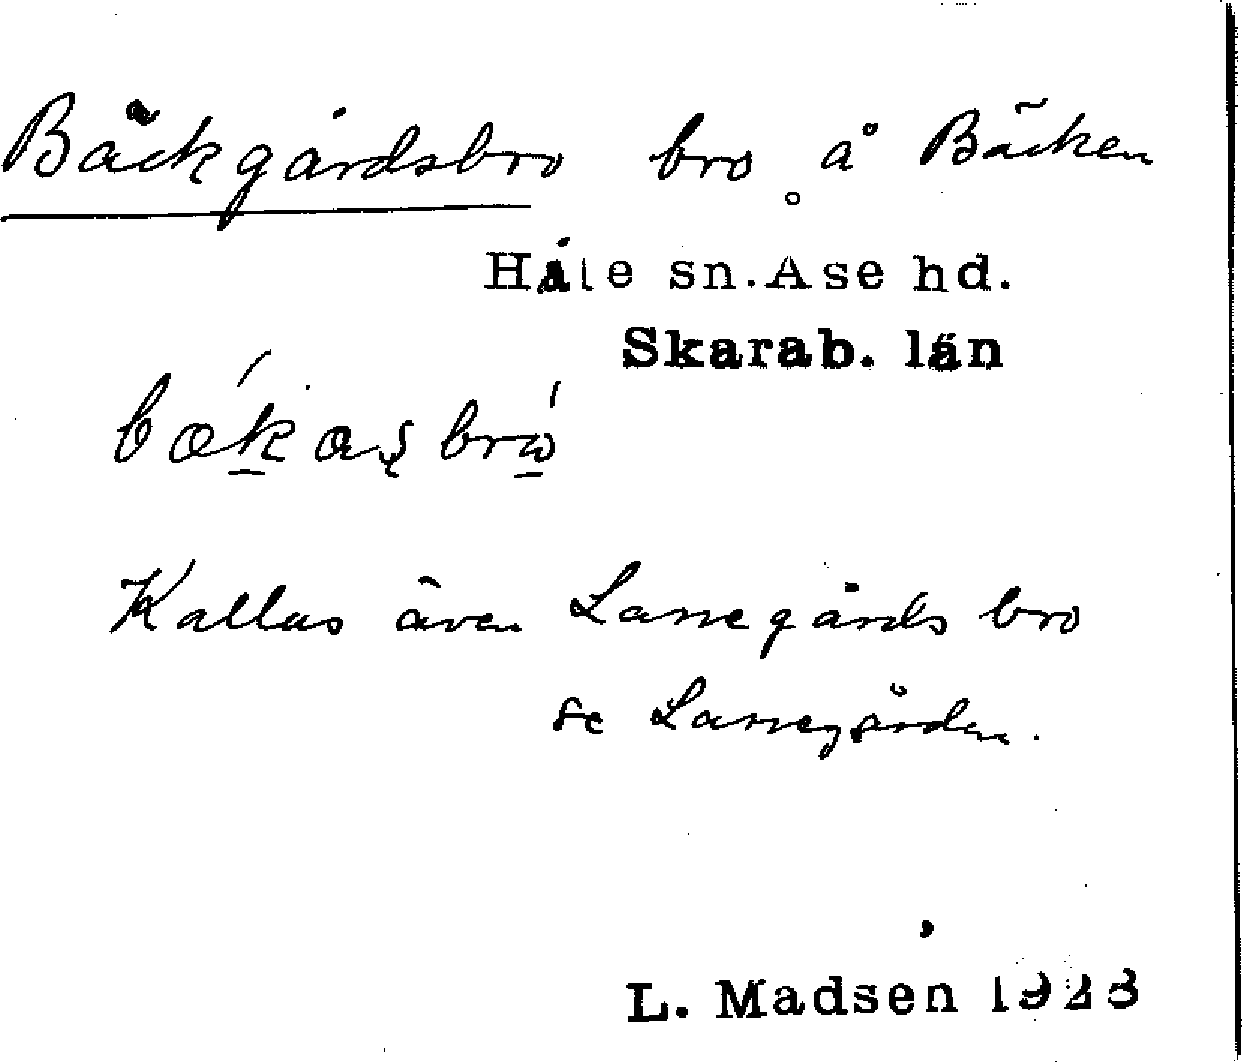 Bäckgårdsbro bro å Bäcken
Håle sn. Åse hd.
Skarab. län
Kallas även Larsegårds bro
se Larsegården.
L. Madsen 1923